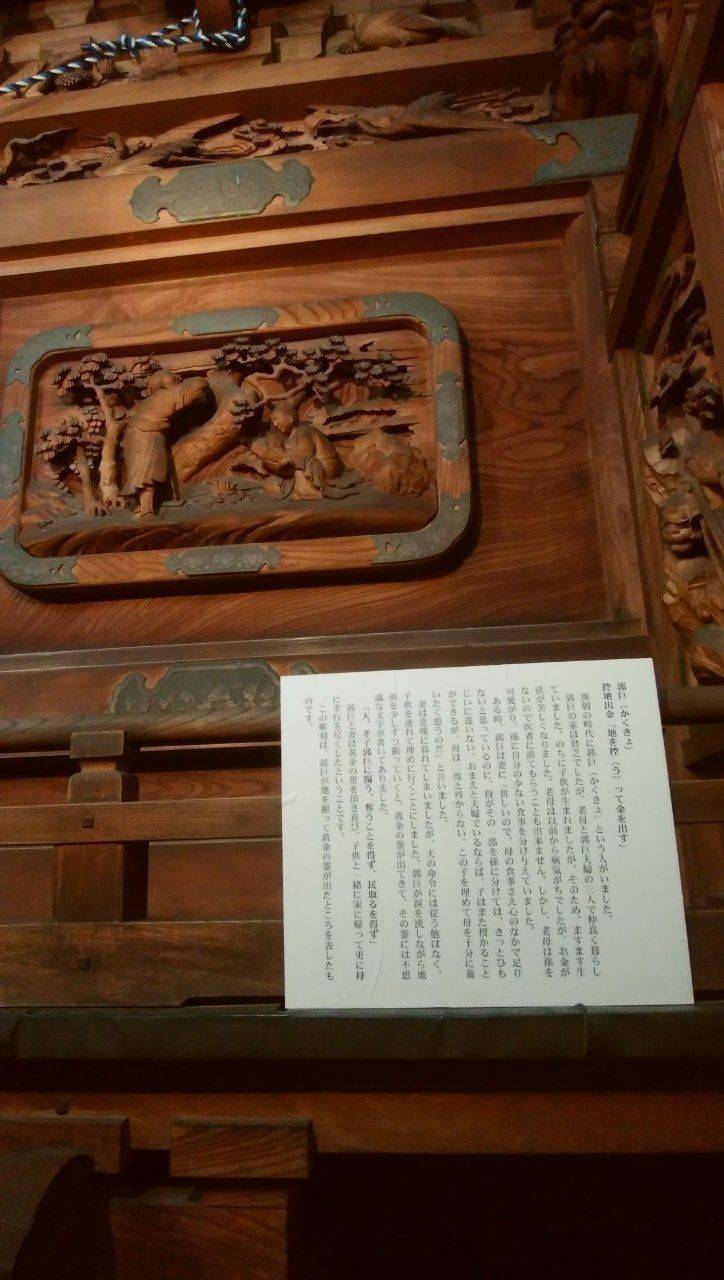 郭巨（かくきょ）
控地出金「地を控（う）って金を出す」
漢朝の時代に郭巨（かくきょ）という人がいました。
郭巨の家は貧乏でしたが、老母と郭巨夫婦の三人で仲良く暮らし
ていました。のちに子供が生まれましたが、そのため、ますます生
活が苦しくなりました。老母は以前から病気がちでしたが、お金が
ないので医者に診てもらうことも出来ません。しかし、老母は孫を
可愛がり、孫に自分の少ない食事を分け与えていました。
ある時、郭巨は妻に「貧しいので、母の食事さえ心のなかで足り
ないと思っているのに、母がその一部を孫に分けては、きっとひも
じいに違いない。おまえと夫婦でいるならば、子はまた授かること
ができるが、母は二度と授からない。この子を埋めて母を十分に養
いたく思うのだ」と言いました。
妻は悲嘆に暮れてしまいましたが、夫の命令には従う他はなく、
子供を連れて埋めに行くことにしました。郭巨が涙を流しながら地
面を少しずつ掘っていくと、黄金の釜が出てきて、その釜には不思
議な文字が書いてありました。
「天、孝子郭巨に賜う、奪うことを得ず、民取るを得ず」
郭巨と妻は黄金の釜を頂き喜び、子供と一緒に家に帰って更に母
に孝行を尽くしたということです。
この彫刻は、郭巨が地を掘って黄金の釜が出たところを表したも
のです。